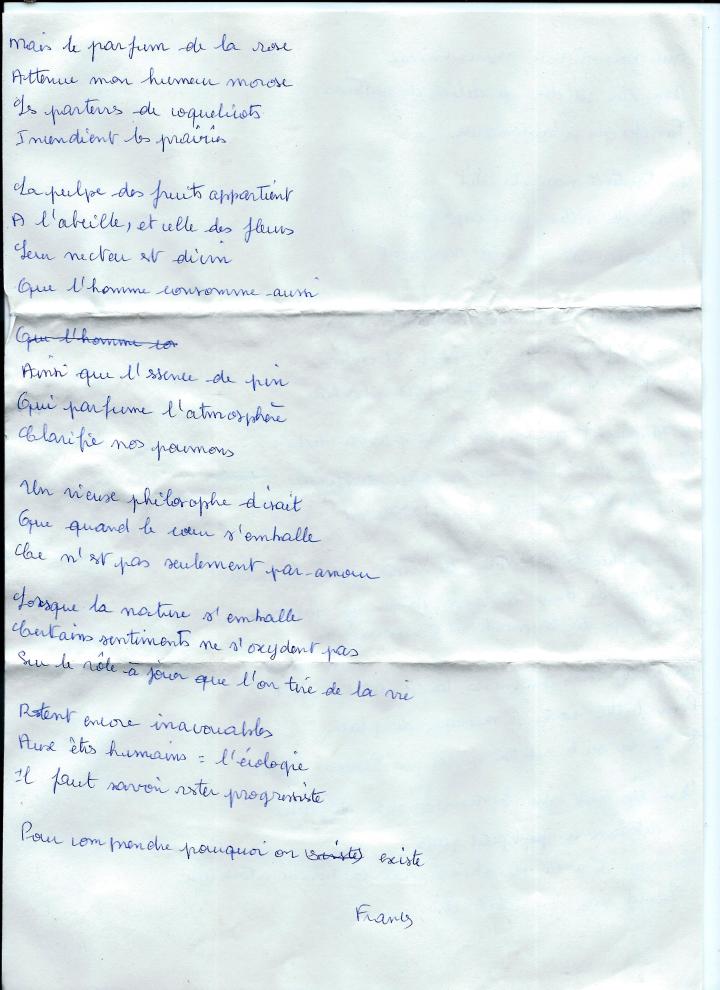 Mais le parfum de la rose
Attenue mon humeur morose
Les parterres de coquelicots
Incendient les prairies
La pulpe des fruits appartient
A l'abeille, et celle des fleurs
Leur nectar est divin
Que l'homme consomme aussi
Que l'homme co
Ainsi que l'essence de pin
Qui parfume l'atmosphère
Clarifie nos poumons
Un vieux philosophe disait
Que quand le cœur s'emballe
Ce n'est pas seulement par amour
Lorsque la nature s'emballe
Certains sentiments ne s'oxydent pas
Sur le rôle à jouer que l'on tire de la vie
Restent encore inavouables
Aux êtres humains = l'écologie
Il faut savoir rester progressiste
Pour comprendre pourquoi on existe